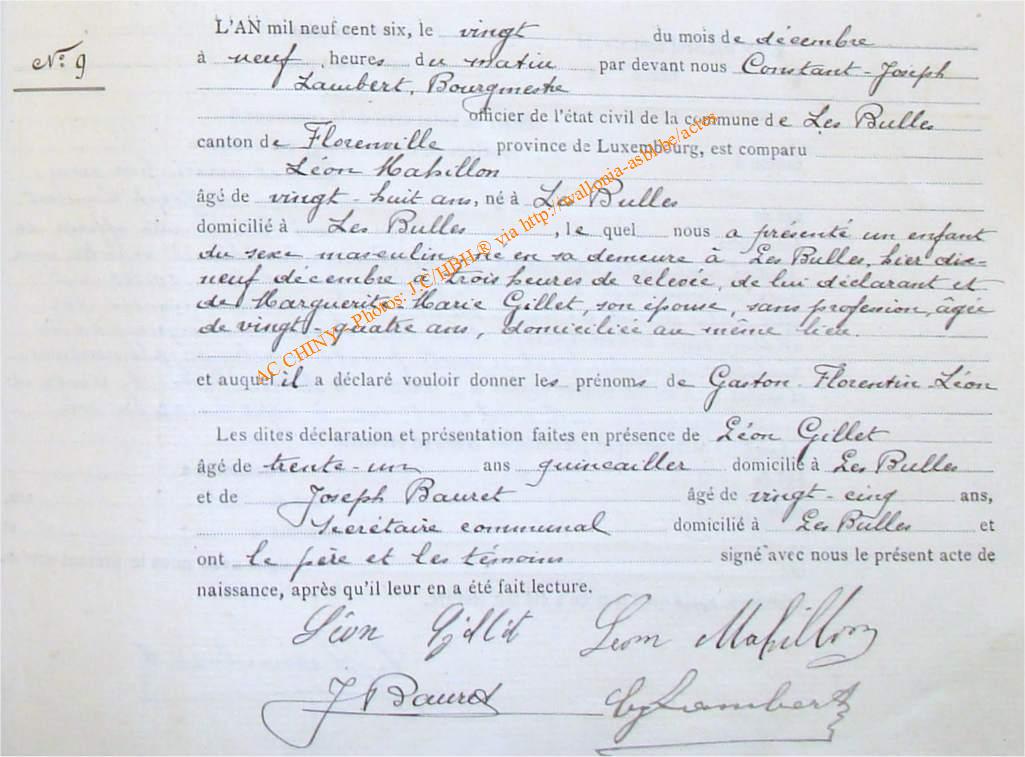 L'AN mil neuf cent six, le vingt du mois de décembre
N° 9
à neuf heures du matin par devant nous Constant-Joseph
Lambert, Bourgmestre
officier de l'état civil de la commune de Les Bulles
canton de Florenville province de Luxembourg, est comparu
Léon Mahillon
âgé de vingt-huit ans, né à Les Bulles
domicilié à Les Bulles, le quel nous a présenté un enfant
du sexe masculin, né en sa demeure à Les Bulles, hier dix-
neuf décembre à trois heures de relevée, de lui déclarant et
de Marguerite-Marie Gillet, son épouse, sans profession, âgée
de vingt-quatre ans, domiciliée au même lieu
et auquel il a déclaré vouloir donner les prénoms de Gaston-Florentin-Léon
Les dites déclaration et présentation faites en présence de Léon Gillet
âgé de trente-un ans quincailler domicilié à Les Bulles
et de Joseph Bauret âgé de vingt-cinq ans,
secrétaire communal domicilié à Les Bulles et
ont le père et les témoins signé avec nous le présent acte de
naissance, après qu'il leur en a été fait lecture.
Léon Gillet Léon Mahillon
J Bauret CJLambert
AC CHINY - Photos: J.C/HBH.® via http://wallonia-asbl.be/actes